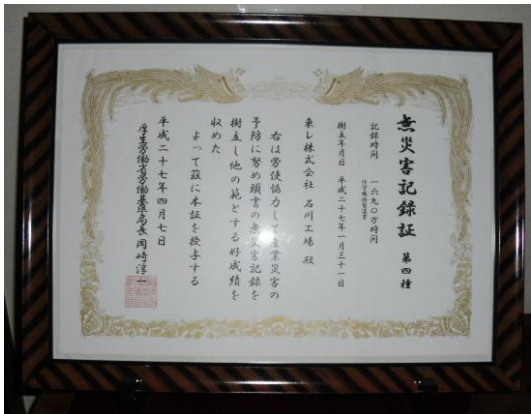 無災害記録証 第四種
記録時間 一六九〇万時間
化学繊維製造業
樹立年月日 平成二十七年一月三十一日
東レ株式会社 石川工場 殿
右は労使協力して産業災害の
予防に努め頭書の無災害記録を
樹立し他の範とする好成績を
収めた
よって茲に本証を授与する
平成二十七年四月七日
厚生労働省労働基準局長 岡崎淳一